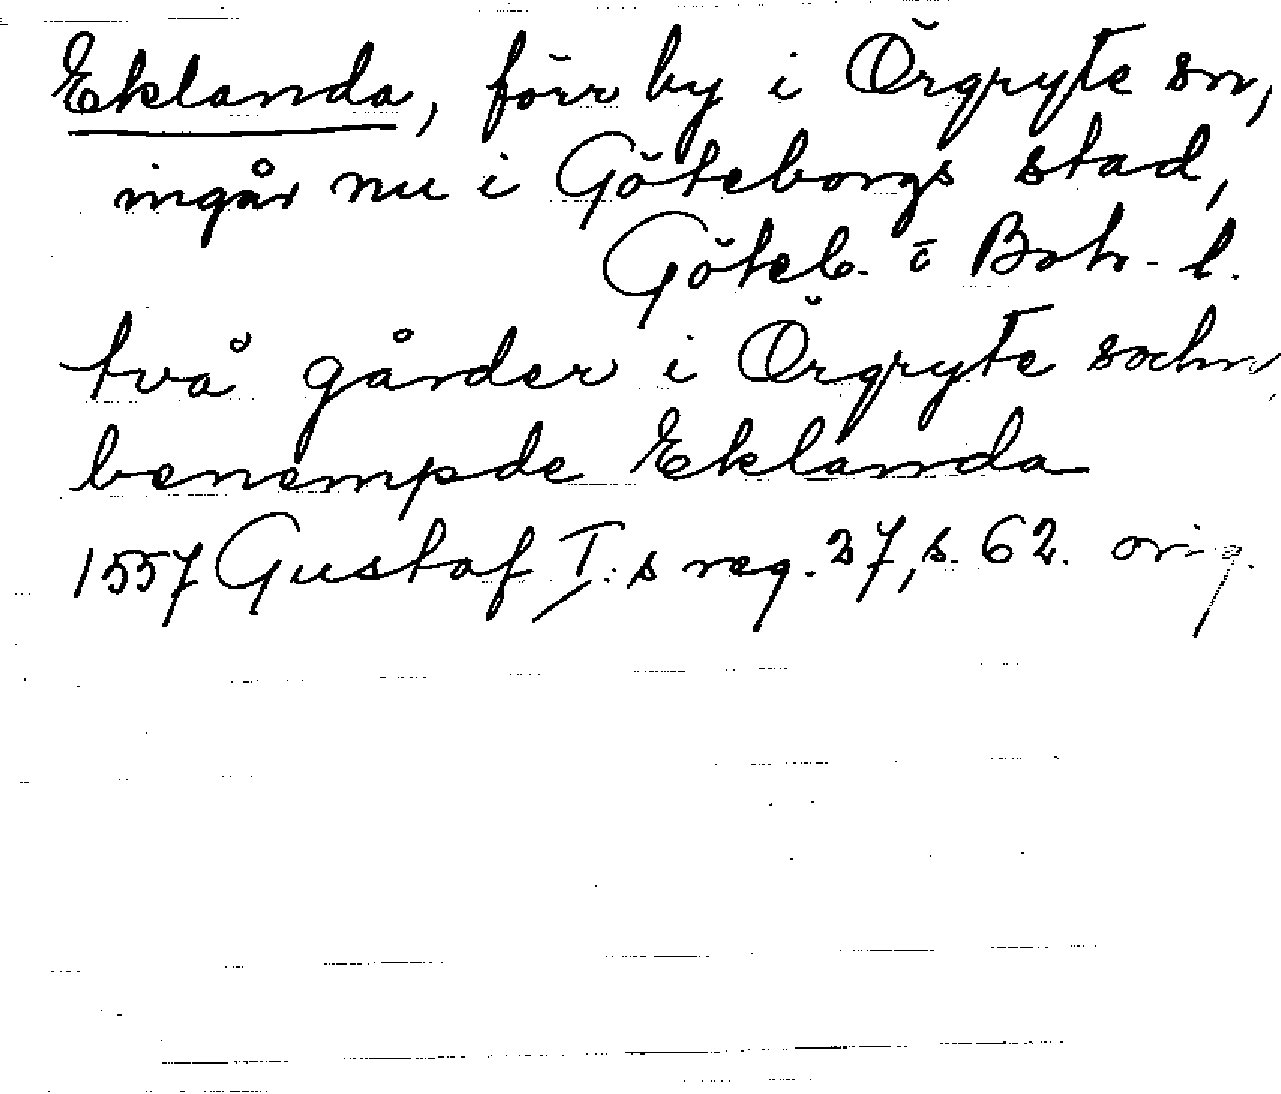 Eklanda, förr by i Örgryte sn,
ingår nu i Göteborgs stad,
Göteb. o Boh. l.
två gårder i Örgryte sochn,
benempde Eklanda
1557 Gustaf I:s reg. 27, s. 62. orig.